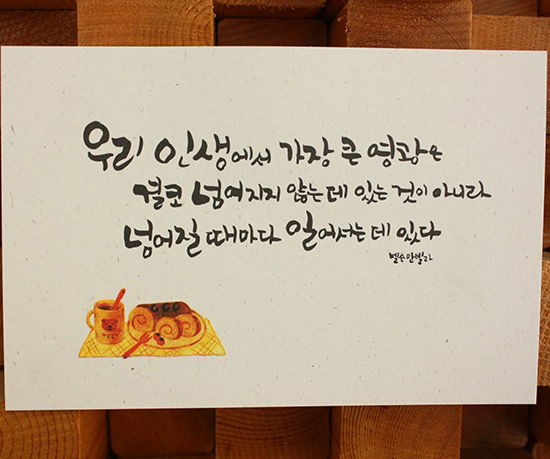 우리 인생에서 가장 큰 영광은
결코 넘어지지 않는 데 있는 것이 아니라
넘어질 때마다 일어서는 데 있다
넬슨 만델라